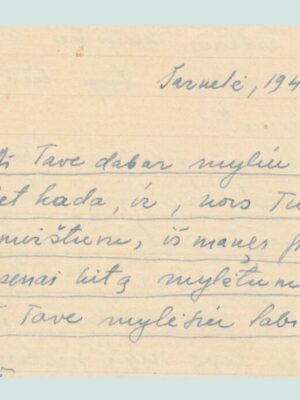 Tarnelė, 194
Aš Tave dabar myliu
et kada, ir, nors Tu
mirštum, iš manęs
senai kitą mylėtum
Tave mylėsiu labi